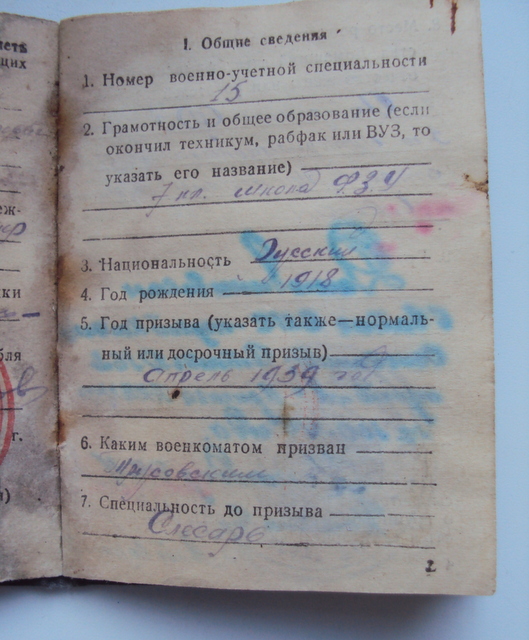 I. Общие сведения
1. Номер военно-учетной специальности
15
2. Грамотность и общее образование (если
окончил техникум, рабфак или ВУЗ, то
указать его название)
7 кл. школа ФЗУ
3. Национальность Русский
4. Год рождения 1918
5. Год призыва (указать также—нормаль-
ный или досрочный призыв)
Апрель 1939 год
6. Каким военкоматом призван
7. Специальность до призыва
Слесарь
2
еть
щих
еж-
ки
бля
г.